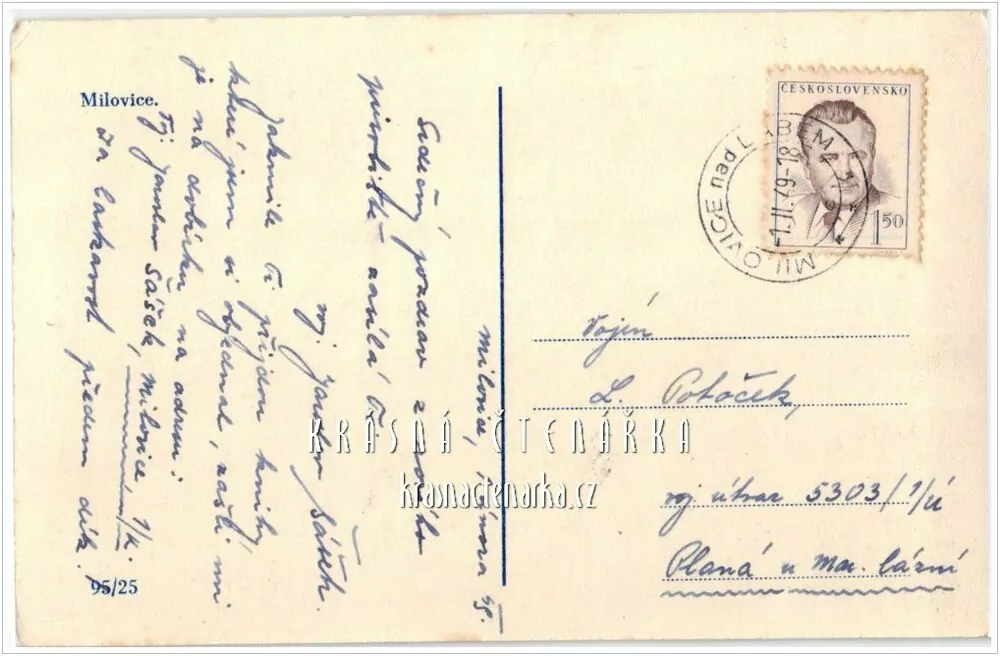 Milovice.
ČESKOSLOVENSKO
1 50
MILOVICE nad LABEM
-1.II.49-18
Milovice, února 49.
Srdečný pozdrav z
Ti
voj. Jaroslav Šášek.
Jakmile Ti přijdou knihy
které jsem si objednal, zašli mi
je na dobírku na adresu:
Voj. Jaroslav Šášek, Milovice, 1/k.
Za laskavost předem dík.
Vojín
L. Potoček,
voj. útvar 5303/1/ú
Planá u Mar. lázní
95/25
KRÁSNÁ ČTENÁŘKA
krasnactenarka.cz